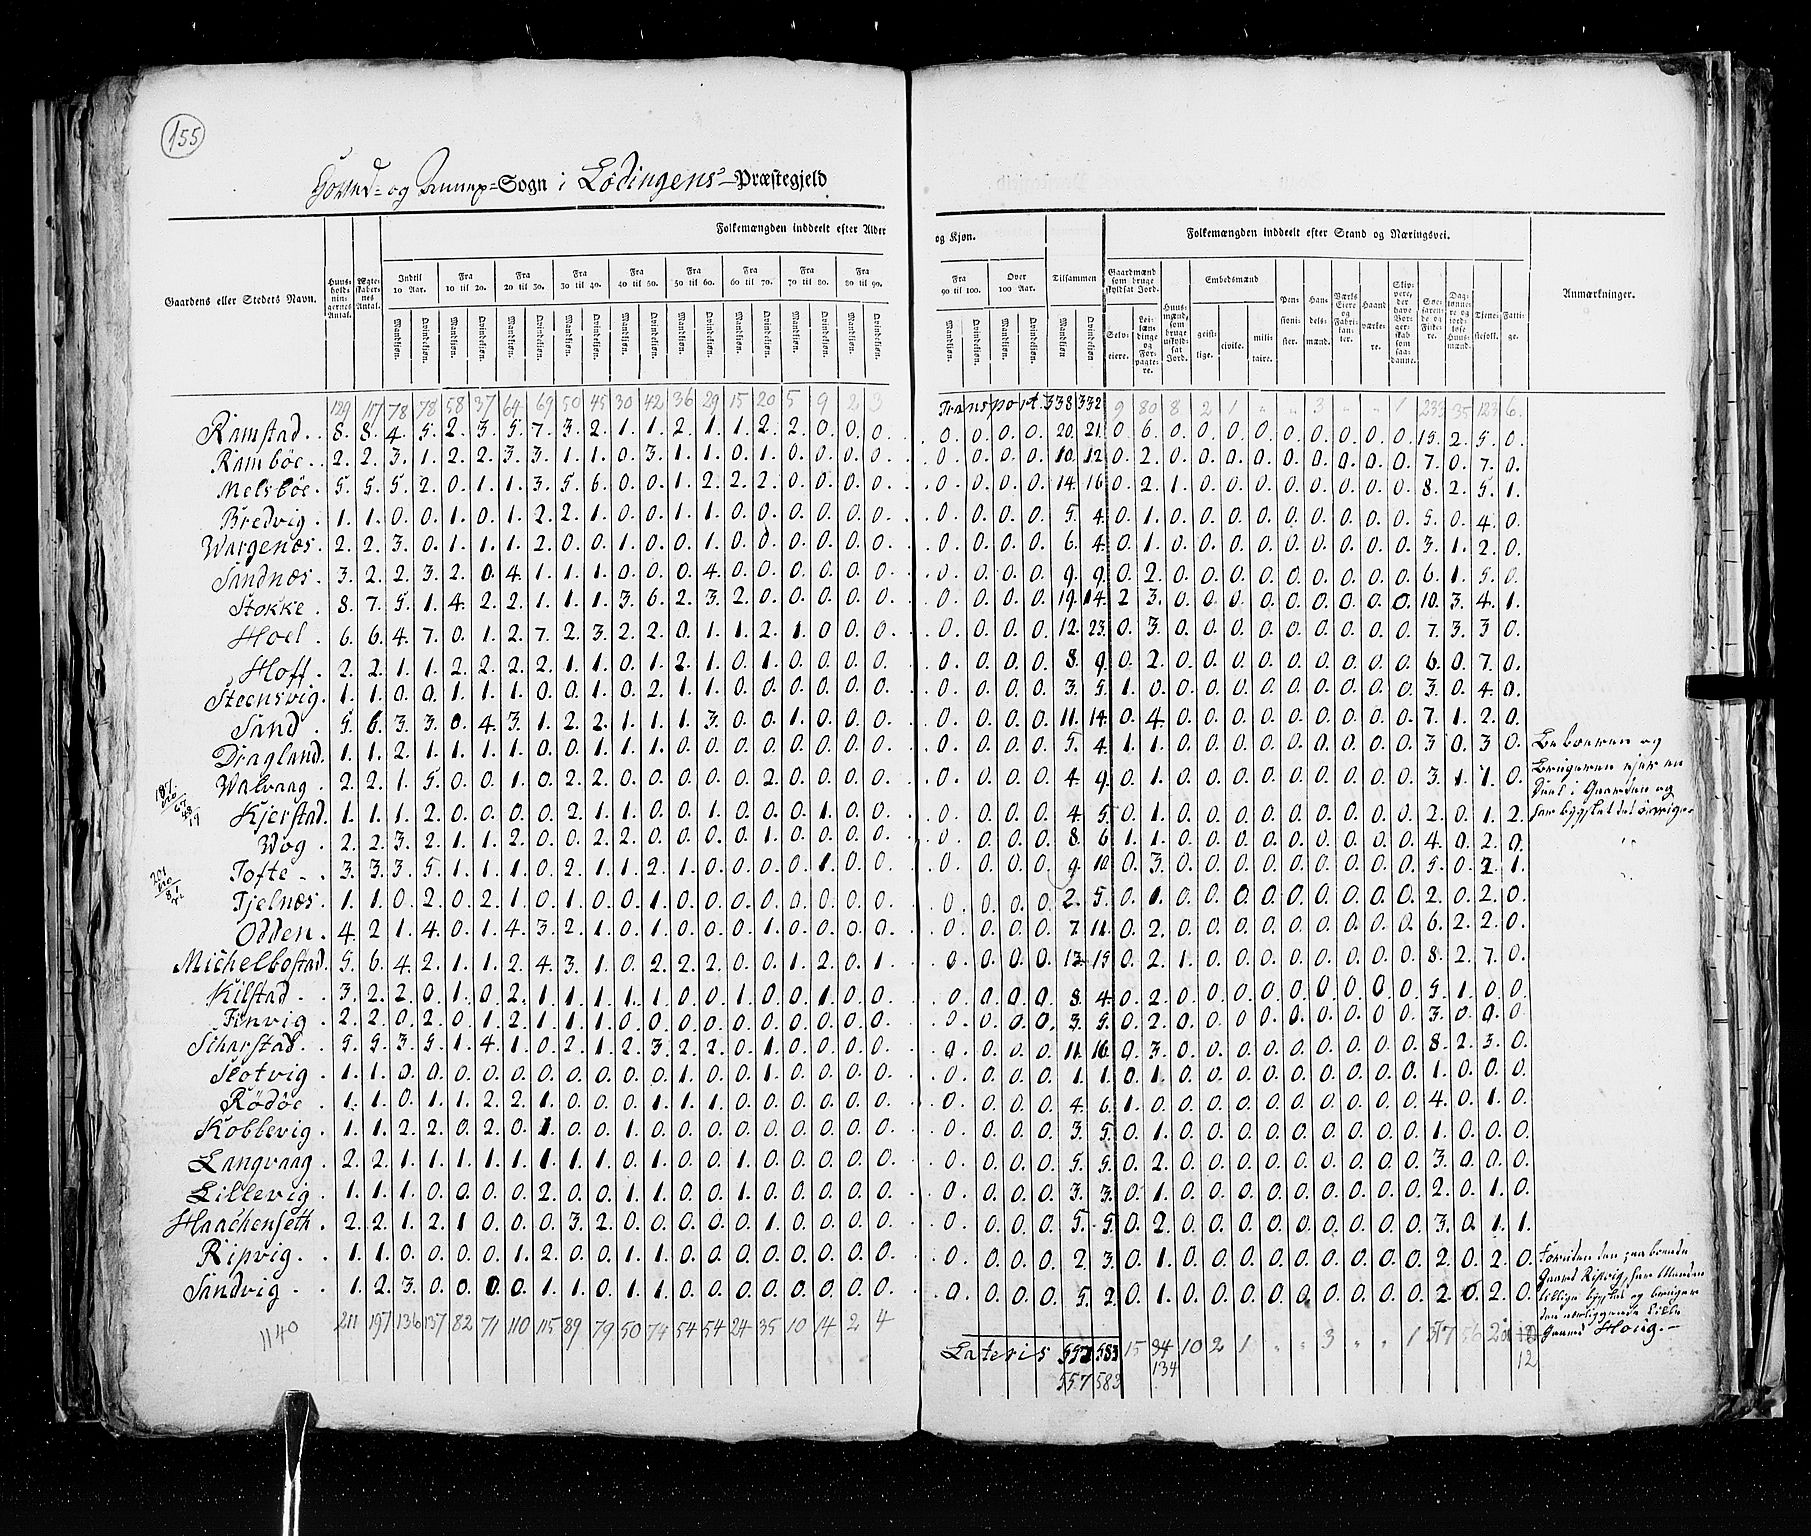 155
og Sogn i Lødingens Præstegjeld
Folkemængden inddeelt efter Alder og Kjøn.
Folkemængden inddeelt efter Stand og Næringsvei.
Gaardens eller Stedets Navn. Huusholdningernes Antal. Ægteskabernes Antal. Indtil 10 Aar. Fra 10 til 20. Fra 20 til 30. Fra 30 til 40. Fra 40 til 50. Fra 50 til 60. Fra 60 til 70. Fra 70 til 80. Fra 80 til 90. Fra 90 til 100. Over 100 Aar. Tilsammen Gaardmænd som bruge skyldsat Jord. Huusmænd, som bruge uskyldsat Jord. Embedsmænd Pensionister. Handelsmænd. Værks Eiere og Fabrikanter. Haandværkere. Skippere, der have Borgerskab som saadanne. Søefarende og Fiskere. Dagleiere og jordløse Huusmænd. Tjenestefolk. Fattige. Anmærkninger.
Mandkjøn. Qvindekjøn. Selveiere. Leilændinge og Forpagtere. geistlige. civile. militaire.
129 117 78 78 58 37 64 69 50 45 30 42 36 29 15 20 5 9 2 3 Transport. 338 332 9 80 8 2 1 " " 3 " " 1 233 35 123 6
Ramstad. 8. 8. 4. 5. 2. 3. 5. 7. 3. 2. 1. 1. 2. 1. 1. 2. 2. 0. 0. 0. 0. 0. 0. 0. 20. 21. 0. 6. 0. 0. 0. 0. 0. 0. 0. 0. 0. 15. 2. 5. 0.
Ramböe. 2. 2. 3. 1. 2. 2. 3. 3. 1. 1. 0. 3. 1. 1. 0. 1. 0. 0. 0. 0. 0. 0. 0. 0. 10. 12. 0. 2. 0. 0. 0. 0. 0. 0. 0. 0. 0. 7. 0. 7. 0.
Melsböe. 5. 5. 5. 2. 0. 1. 1. 3. 5. 6. 0. 0. 1. 2. 2. 2. 0. 0. 0. 0. 0. 0. 0. 0. 14. 16. 0. 2. 1. 0. 0. 0. 0. 0. 0. 0. 0. 8. 2. 5. 1.
Bredvig. 1. 1. 0. 0. 1. 0. 1. 2. 2. 1. 0. 0. 1. 1. 0. 0. 0. 0. 0. 0. 0. 0. 0. 0. 5. 4. 0. 1. 0. 0. 0. 0. 0. 0. 0. 0. 0. 5. 0. 4. 0.
Wargenæs. 2. 2. 3. 0. 1. 1. 1. 2. 0. 0. 1. 0. 0. 1. 0. 0. 0. 0. 0. 0. 0. 0. 0. 0. 6. 4. 0. 1. 0. 0. 0. 0. 0. 0. 0. 0. 0. 3. 1. 2. 0.
Sandnæs. 3. 2. 2. 3. 2. 0. 4. 1. 1. 1. 0. 0. 0. 4. 0. 0. 0. 0. 0. 0. 0. 0. 0. 0. 9. 9. 0. 2. 0. 0. 0. 0. 0. 0. 0. 0. 0. 6. 1. 5. 0.
Stokke. 8. 7. 5. 1. 4. 2. 2. 1. 1. 1. 3. 6. 2. 3. 2. 0. 0. 0. 0. 0. 0. 0. 0. 0. 19. 14. 2. 3. 0. 0. 0. 0. 0. 0. 0. 0. 0. 10. 3. 4. 1.
Hoel. 6. 6. 4. 7. 0. 1. 2. 7. 2. 3. 2. 2. 0. 1. 1. 2. 1. 0. 0. 0. 0. 0. 0. 0. 12. 23. 0. 3. 0. 0. 0. 0. 0. 0. 0. 0. 0. 7. 3. 3. 0.
Hoff. 2. 2. 1. 1. 2. 2. 2. 2. 1. 1. 0. 1. 2. 1. 0. 1. 0. 0. 0. 0. 0. 0. 0. 0. 8. 9. 0. 2. 0. 0. 0. 0. 0. 0. 0. 0. 0. 6. 0. 7. 0.
Steensvig. 1. 1. 0. 0. 1. 1. 1. 0. 0. 1. 0. 2. 1. 1. 0. 0. 0. 0. 0. 0. 0. 0. 0. 0. 3. 5. 1. 0. 0. 0. 0. 0. 0. 0. 0. 0. 0. 3. 0. 4. 0.
Sand. 5. 6. 3. 3. 0. 4. 3. 1. 2. 2. 1. 1. 1. 3. 0. 0. 1. 0. 0. 0. 0. 0. 0. 0. 11. 14. 0. 4. 0. 0. 0. 0. 0. 0. 0. 0. 0. 7. 1. 2. 0.
Dragland. 1. 1. 2. 1. 1. 1. 1. 0. 0. 1. 1. 1. 0. 0. 0. 0. 0. 0. 0. 0. 0. 0. 0. 0. 5. 4. 1. 1. 0. 0. 0. 0. 0. 0. 0. 0. 0. 3. 0. 3. 0. Beboeren og
Walvaag. 2. 2. 1. 5. 0. 0. 1. 0. 2. 2. 0. 0. 0. 0. 0. 2. 0. 0. 0. 0. 0. 0. 0. 0. 4. 9. 0. 1. 0. 0. 0. 0. 0. 0. 0. 0. 0. 3. 1. 1. 0. Brugeren eier en
Deel i Gaarden og
Kjerstad. 1. 1. 1. 2. 0. 0. 0. 0. 2. 1. 1. 1. 0. 0. 0. 0. 0. 1. 0. 0. 0. 0. 0. 0. 4. 5. 0. 1. 0. 0. 0. 0. 0. 0. 0. 0. 0. 2. 0. 1. 2. har bygslet det övrige.
Wog. 2. 2. 3. 2. 1. 1. 2. 0. 0. 2. 2. 0. 0. 0. 0. 1. 0. 0. 0. 0. 0. 0. 0. 0. 8. 6. 1. 1. 0. 0. 0. 0. 0. 0. 0. 0. 0. 4. 0. 2. 0.
Tofte. 3. 3. 3. 5. 1. 1. 1. 0. 2. 1. 1. 2. 1. 0. 0. 0. 0. 1. 0. 0. 0. 0. 0. 0. 9. 10. 0. 3. 0. 0. 0. 0. 0. 0. 0. 0. 0. 5. 0. 2. 1.
Tjelnæs. 1. 1. 0. 2. 0. 2. 1. 0. 1. 0. 0. 1. 0. 0. 0. 0. 0. 0. 0. 0. 0. 0. 0. 0. 2. 5. 0. 1. 0. 0. 0. 0. 0. 0. 0. 0. 0. 2. 0. 2. 0.
Odden. 4. 2. 1. 4. 0. 1. 4. 3. 2. 1. 0. 1. 0. 0. 0. 1. 0. 0. 0. 0. 0. 0. 0. 0. 7. 11. 0. 2. 0. 0. 0. 0. 0. 0. 0. 0. 0. 6. 2. 2. 0.
Michelbostad. 5. 6. 4. 2. 1. 1. 2. 4. 3. 1. 0. 2. 2. 2. 0. 0. 1. 2. 0. 1. 0. 0. 0. 0. 13. 15. 0. 2. 1. 0. 0. 0. 0. 0. 0. 0. 0. 8. 2. 7. 0.
Kilstad. 3. 2. 2. 0. 1. 0. 2. 1. 1. 1. 1. 1. 0. 0. 1. 0. 0. 1. 0. 0. 0. 0. 0. 0. 8. 4. 0. 2. 0. 0. 0. 0. 0. 0. 0. 0. 0. 5. 1. 0. 0.
Finvig. 2. 2. 0. 2. 0. 1. 2. 1. 1. 1. 0. 0. 0. 0. 0. 0. 0. 0. 0. 0. 0. 0. 0. 0. 3. 5. 0. 2. 0. 0. 0. 0. 0. 0. 0. 0. 0. 3. 0. 0. 0.
Scharstad. 5. 5. 3. 5. 1. 4. 1. 0. 2. 1. 2. 3. 2. 2. 0. 1. 0. 0. 0. 0. 0. 0. 0. 0. 11. 16. 0. 3. 0. 0. 0. 0. 0. 0. 0. 0. 0. 8. 2. 3. 0.
Slotvig. 1. 1. 0. 0. 0. 0. 0. 0. 0. 0. 0. 0. 1. 0. 0. 1. 0. 0. 0. 0. 0. 0. 0. 0. 1. 1. 0. 1. 0. 0. 0. 0. 0. 0. 0. 0. 0. 1. 0. 0. 0.
Rödöe. 1. 1. 0. 1. 1. 2. 2. 1. 0. 0. 0. 1. 1. 1. 0. 0. 0. 0. 0. 0. 0. 0. 0. 0. 4. 6. 1. 0. 0. 0. 0. 0. 0. 0. 0. 0. 0. 4. 0. 1. 0.
Koblevig. 1. 1. 2. 2. 0. 2. 0. 1. 0. 0. 1. 0. 0. 0. 0. 0. 0. 0. 0. 0. 0. 0. 0. 0. 3. 5. 0. 1. 0. 0. 0. 0. 0. 0. 0. 0. 0. 1. 0. 0. 0.
Langvaag. 2. 2. 1. 1. 1. 1. 1. 1. 1. 1. 0. 1. 0. 0. 1. 0. 0. 0. 0. 0. 0. 0. 0. 0. 5. 5. 0. 2. 0. 0. 0. 0. 0. 0. 0. 0. 0. 3. 0. 0. 0.
Lillevig. 1. 1. 1. 0. 0. 0. 0. 2. 0. 0. 1. 1. 0. 0. 1. 0. 0. 0. 0. 0. 0. 0. 0. 0. 3. 3. 0. 1. 0. 0. 0. 0. 0. 0. 0. 0. 0. 2. 0. 1. 0.
Haachenseth. 2. 2. 1. 2. 1 0. 0. 0. 3. 2. 0. 0. 0. 0. 0. 1. 0. 0. 0. 0. 0. 0. 0. 0. 5. 5. 0. 2. 0. 0. 0. 0. 0. 0. 0. 0. 0. 3. 0. 1. 1.
Ripvig. 1. 1. 0. 0. 0. 0. 1. 2. 0. 0. 1. 1. 0. 0. 0. 0. 0. 0. 0. 0. 0. 0. 0. 0. 2. 3. 0. 1. 0. 0. 0. 0. 0. 0. 0. 0. 0. 2. 0. 2. 0. Foruden den paaboende
Gaard Ripvig, har Manden
Sandvig. 1. 2. 3. 0. 0. 0. 0. 1. 1. 0. 1. 1. 0. 0. 0. 0. 0. 0. 0. 0. 0. 0. 0. 0. 5. 2. 0. 1. 0. 0. 0. 0. 0. 0. 0. 0. 0. 2. 0. 2. 0. tillige bygslet og bruger
den nærliggende lille
Gaard Houg.
1140 211 197 136 137 82 71 110 115 89 79 50 74 54 54 24 35 10 14 2 4
Lateris 557 583 15 94 10 2 1 " " 3 " " 1 377 56
557 583 134 12